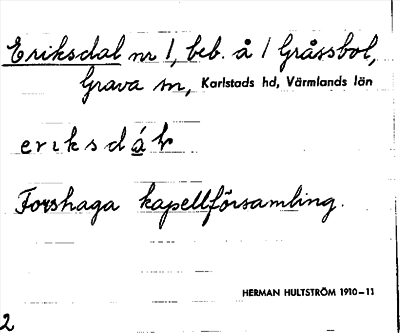 Eriksdal nr 1, beb. å 1 Gråssbol,
Grava sn, Karlstads hd, Värmlands län
Forshaga kapellförsamling.
HERMAN HULTSTRÖM 1910-11
2